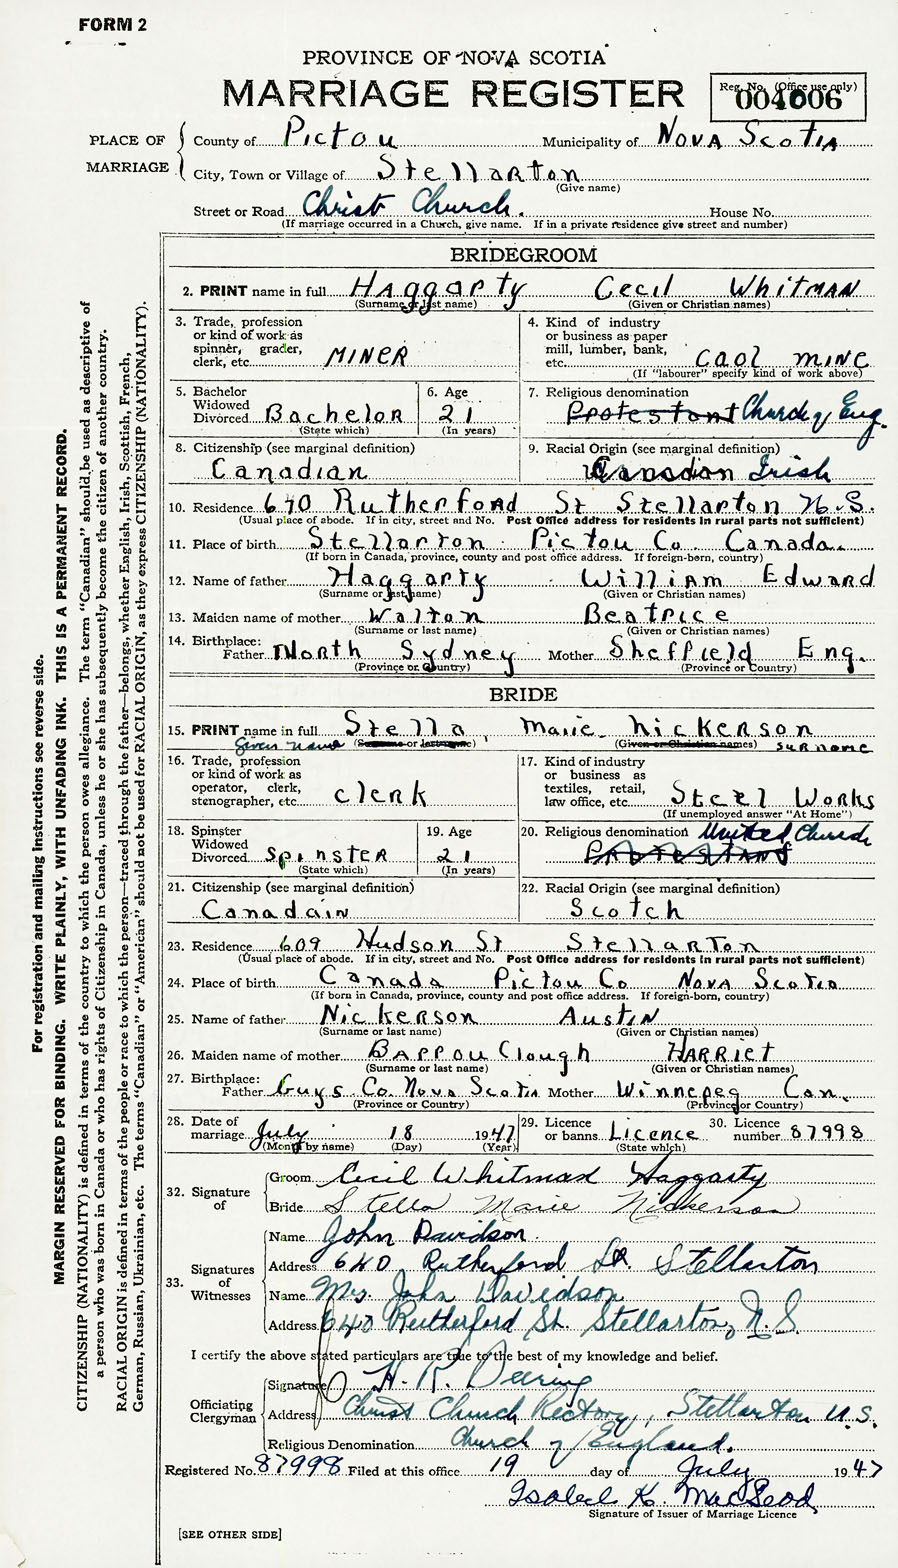 FORM 2
PROVINCE OF NOVA SCOTIA
MARRIAGE REGISTER
Reg. No. (Office use only)
004006
PLACE OF MARRIAGE
County of Pictou Municipality of Nova Scotia
City, Town or Village of Stellarton
(Give name)
Street or Road Christ Church. House No.
(If marriage occurred in a Church, give name. If in a private residence give street and number)
BRIDEGROOM
2. PRINT name in full Haggarty Cecil Whitman
(Surname or last name) (Given or Christian names)
3. Trade, profession or kind of work as spinner, grader, clerk, etc. MINER
4. Kind of industry or business as paper mill, lumber, bank, etc. Caol mine
(If "labourer" specify kind of work above)
5. Bachelor Widowed Divorced Bachelor
(State which)
6. Age 21
(In years)
7. Religious denomination Protestant Church of Eng.
8. Citizenship (see marginal definition) Canadian
9. Racial Origin (see marginal definition) Canadian Irish
10. Residence 670 Rutherford St Stellarton N.S.
(Usual place of abode. If in city, street and No. Post Office address for residents in rural parts not sufficient)
11. Place of birth Stellarton Pictou Co. Canada.
(If born in Canada, province, county and post office address. If foreign-born, country)
12. Name of father Haggarty William Edward
(Surname or last name) (Given or Christian names)
13. Maiden name of mother Walton Beatrice
(Surname or last name) (Given or Christian names)
14. Birthplace: Father North Sydney Mother Sheffield Eng.
(Province or Country) (Province or Country)
BRIDE
15. PRINT name in full Stella Marie Nickerson
Given name (Surname or last name) (Given or Christian names) surname
16. Trade, profession or kind of work as operator, clerk, stenographer, etc. Clerk
17. Kind of industry or business as textiles, retail, law office, etc. Steel Works
(If unemployed answer "At Home")
18. Spinster Widowed Divorced Spinster
(State which)
19. Age 21
(In years)
20. Religious denomination United Church
Protestant
21. Citizenship (see marginal definition) Canadain
22. Racial Origin (see marginal definition) Scotch
23. Residence 609 Hudson St Stellarton
(Usual place of abode. If in city, street and No. Post Office address for residents in rural parts not sufficient)
24. Place of birth Canada Pictou Co Nova Scotia
(If born in Canada, province, county and post office address. If foreign-born, country)
25. Name of father Nickerson Austin
(Surname or last name) (Given or Christian names)
26. Maiden name of mother Barrouclough Harriet
(Surname or last name) (Given or Christian names)
27. Birthplace: Father Guys. Co. Nova Scotia Mother Winnepeg Can.
(Province or Country) (Province or Country)
28. Date of marriage July 18 1947
(Month by name) (Day) (Year)
29. Licence or banns Licence
(State which)
30. Licence number 87998
32. Signature of
Groom Cecil Whitman Haggarty
Bride Stella Marie Nickerson
33. Signatures of Witnesses
Name John Davidson.
Address 640 Rutherford St. Stellarton
Name Mrs. John Davidson
Address 640 Rutherford St. Stellarton, N.S.
I certify the above stated particulars are true to the best of my knowledge and belief.
Officiating Clergyman
Signature H. R. Deering
Address Christ Church Rectory, Stellarton N.S.
Religious Denomination Church of England.
Registered No. 87998 Filed at this office 19 day of July 1947
Isabel K. MacLeod
Signature of Issuer of Marriage Licence
[SEE OTHER SIDE]
For registration and mailing instructions see reverse side.
MARGIN RESERVED FOR BINDING. WRITE PLAINLY, WITH UNFADING INK. THIS IS A PERMANENT RECORD.
CITIZENSHIP (NATIONALITY) is defined in terms of the country to which the person owes allegiance. The term "Canadian" should be used as descriptive of
a person who was born in Canada or who has rights of Citizenship in Canada, unless he or she has subsequently become the citizen of another country.
RACIAL ORIGIN is defined in terms of the people or race to which the person—traced through the father—belongs, whether English, Irish, Scottish, French,
German, Russian, Ukrainian, etc. The terms "Canadian" or "American" should not be used for RACIAL ORIGIN, as they express CITIZENSHIP (NATIONALITY).